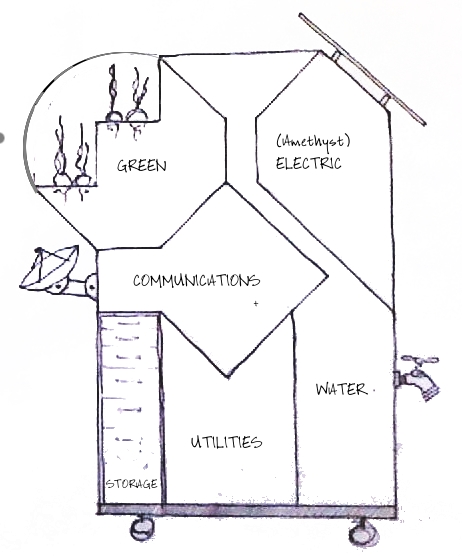 (Amethyst)
ELECTRIC
GREEN
COMMUNICATIONS
WATER
UTILITIES
STORAGE